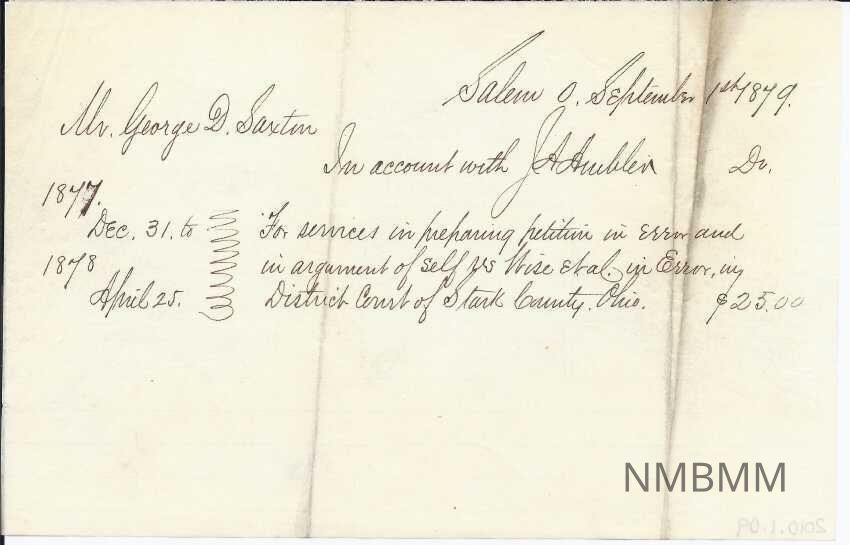 Salem O. September 1st 1879.
Mr. George D. Saxton
In account with J A Ambler Dr.
1877.
Dec. 31. to For services in preparing petition in error and
1878 in argument of self vs Wise et al. in Error, in
April 25. District Court of Stark County. Ohio. $25.00
NMBMM
2010.1.09